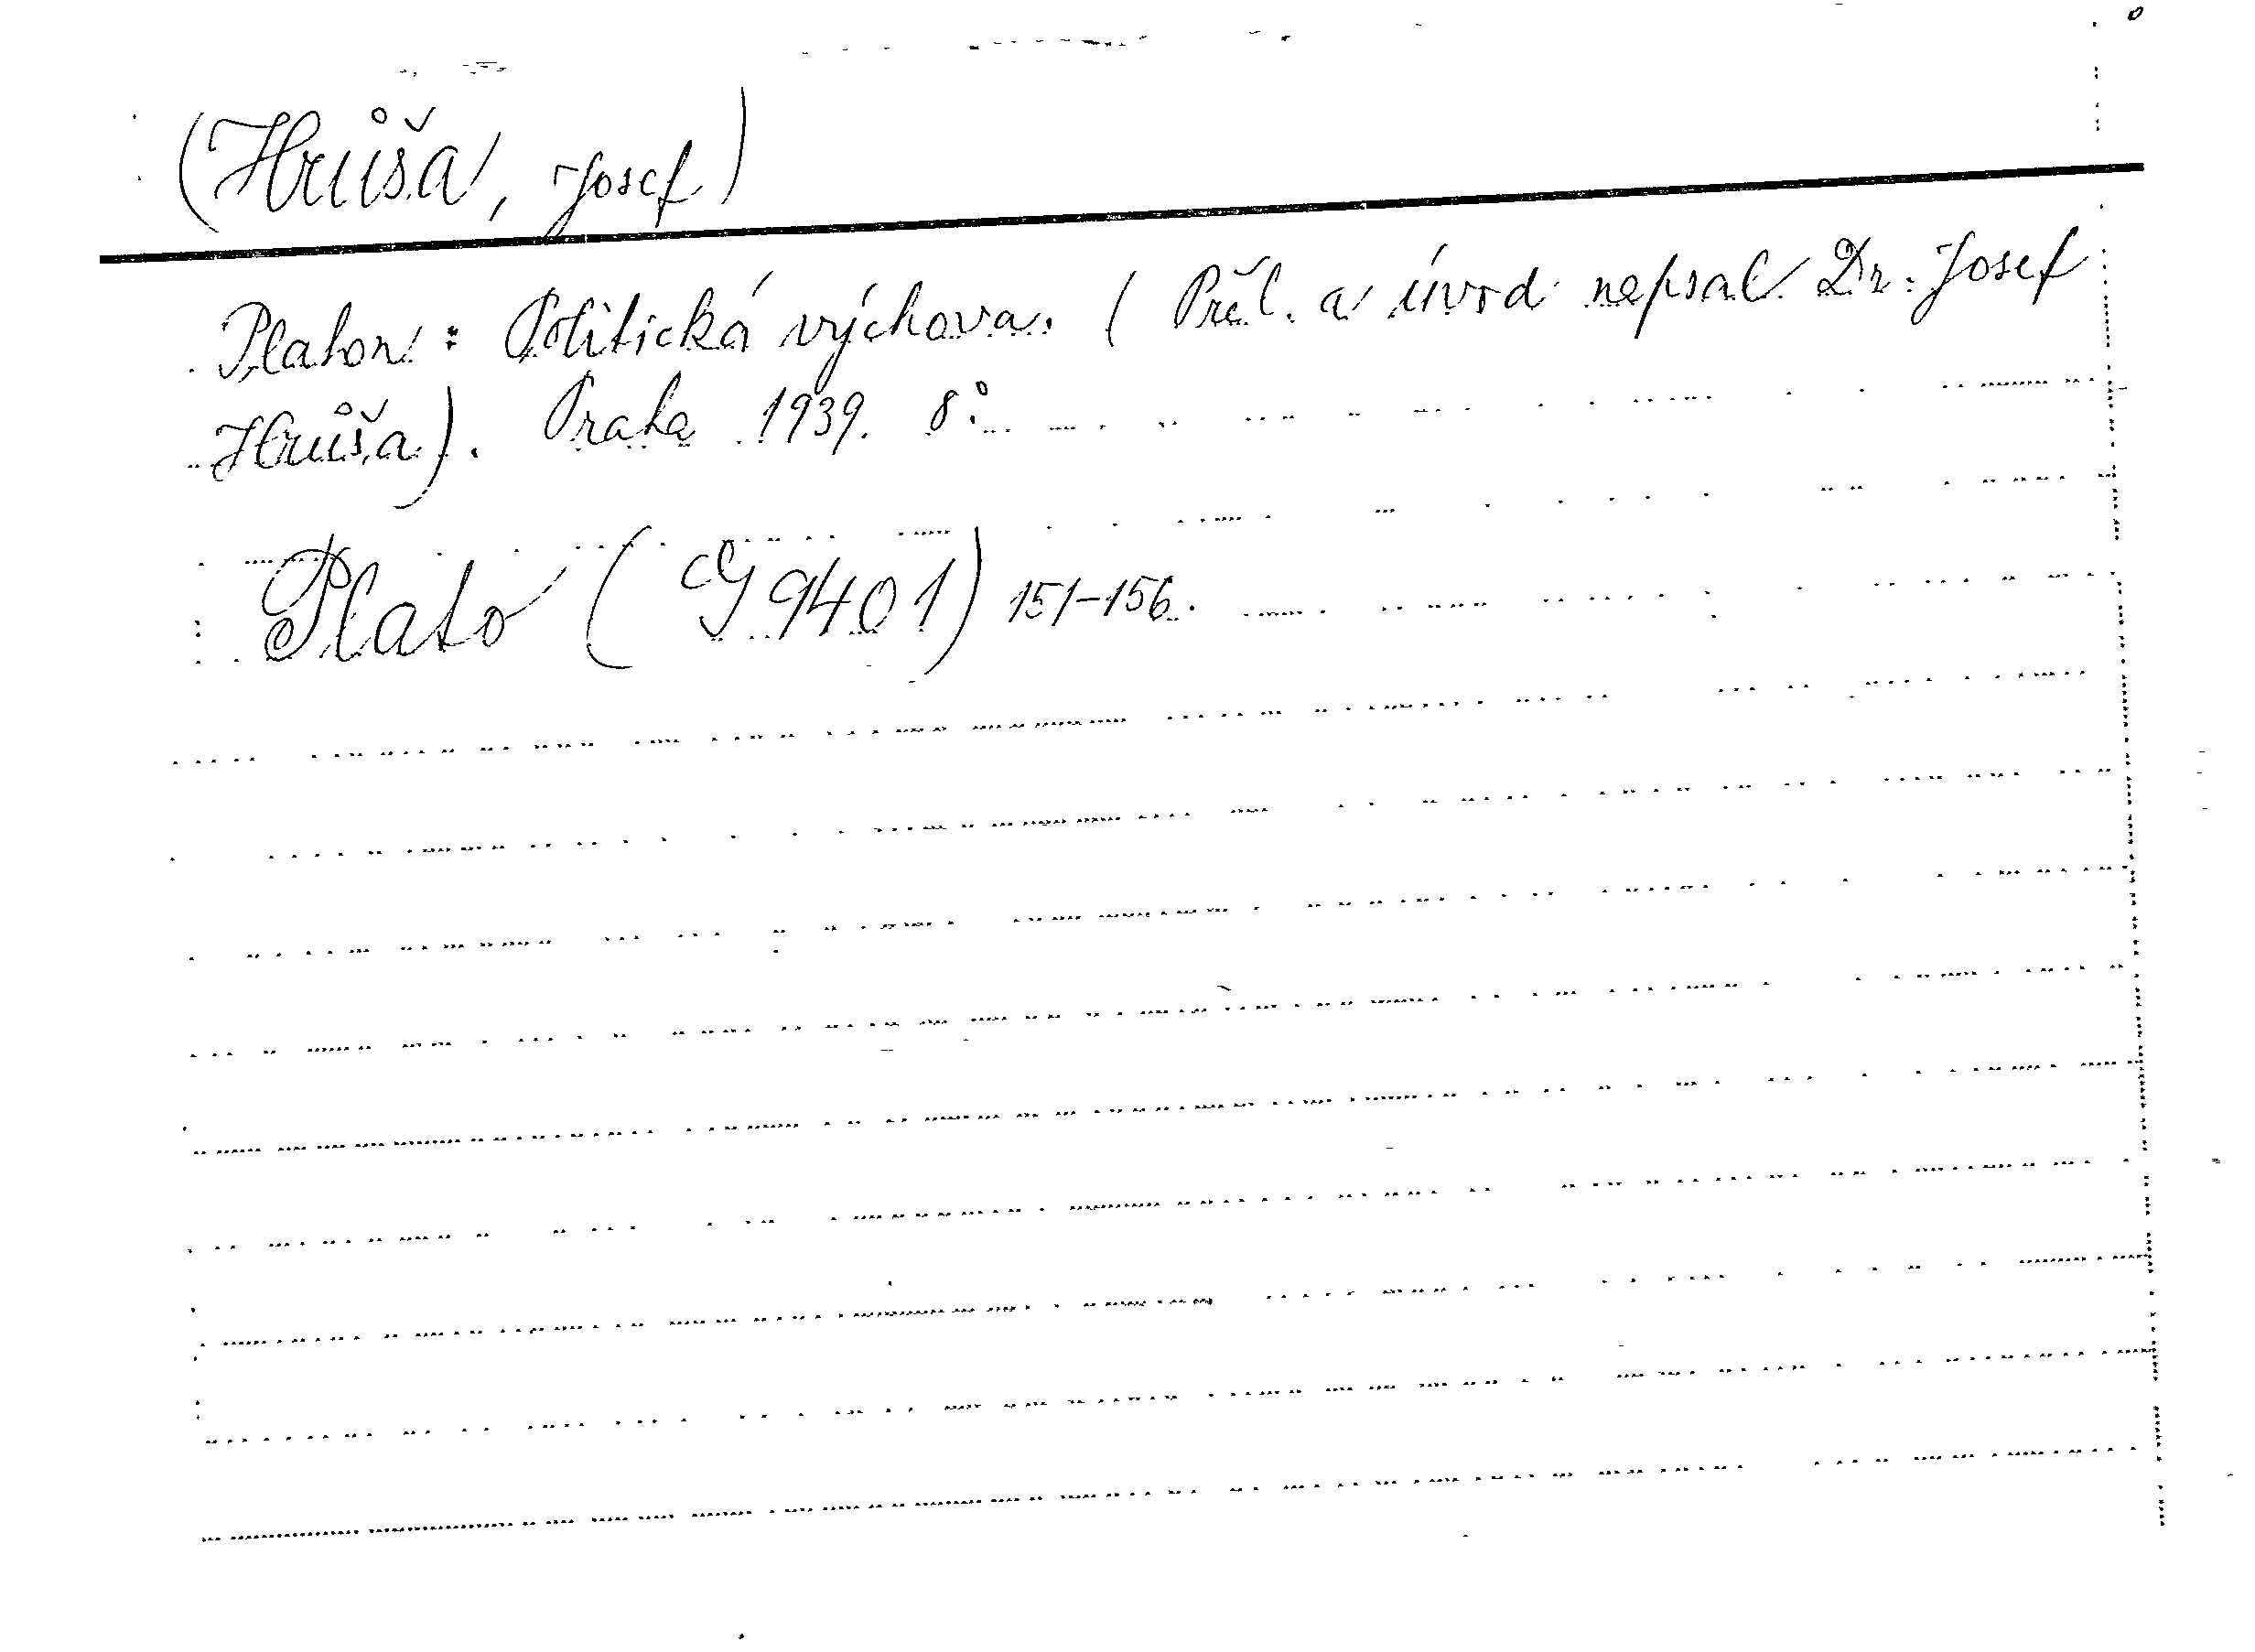 (Hrůša, Josef)
Platon: Politická výchova. (Přel. a úvod napsal Dr. Josef
Hrůša). Praha 1939. 8°.
Plato (G 9401) 151-156.